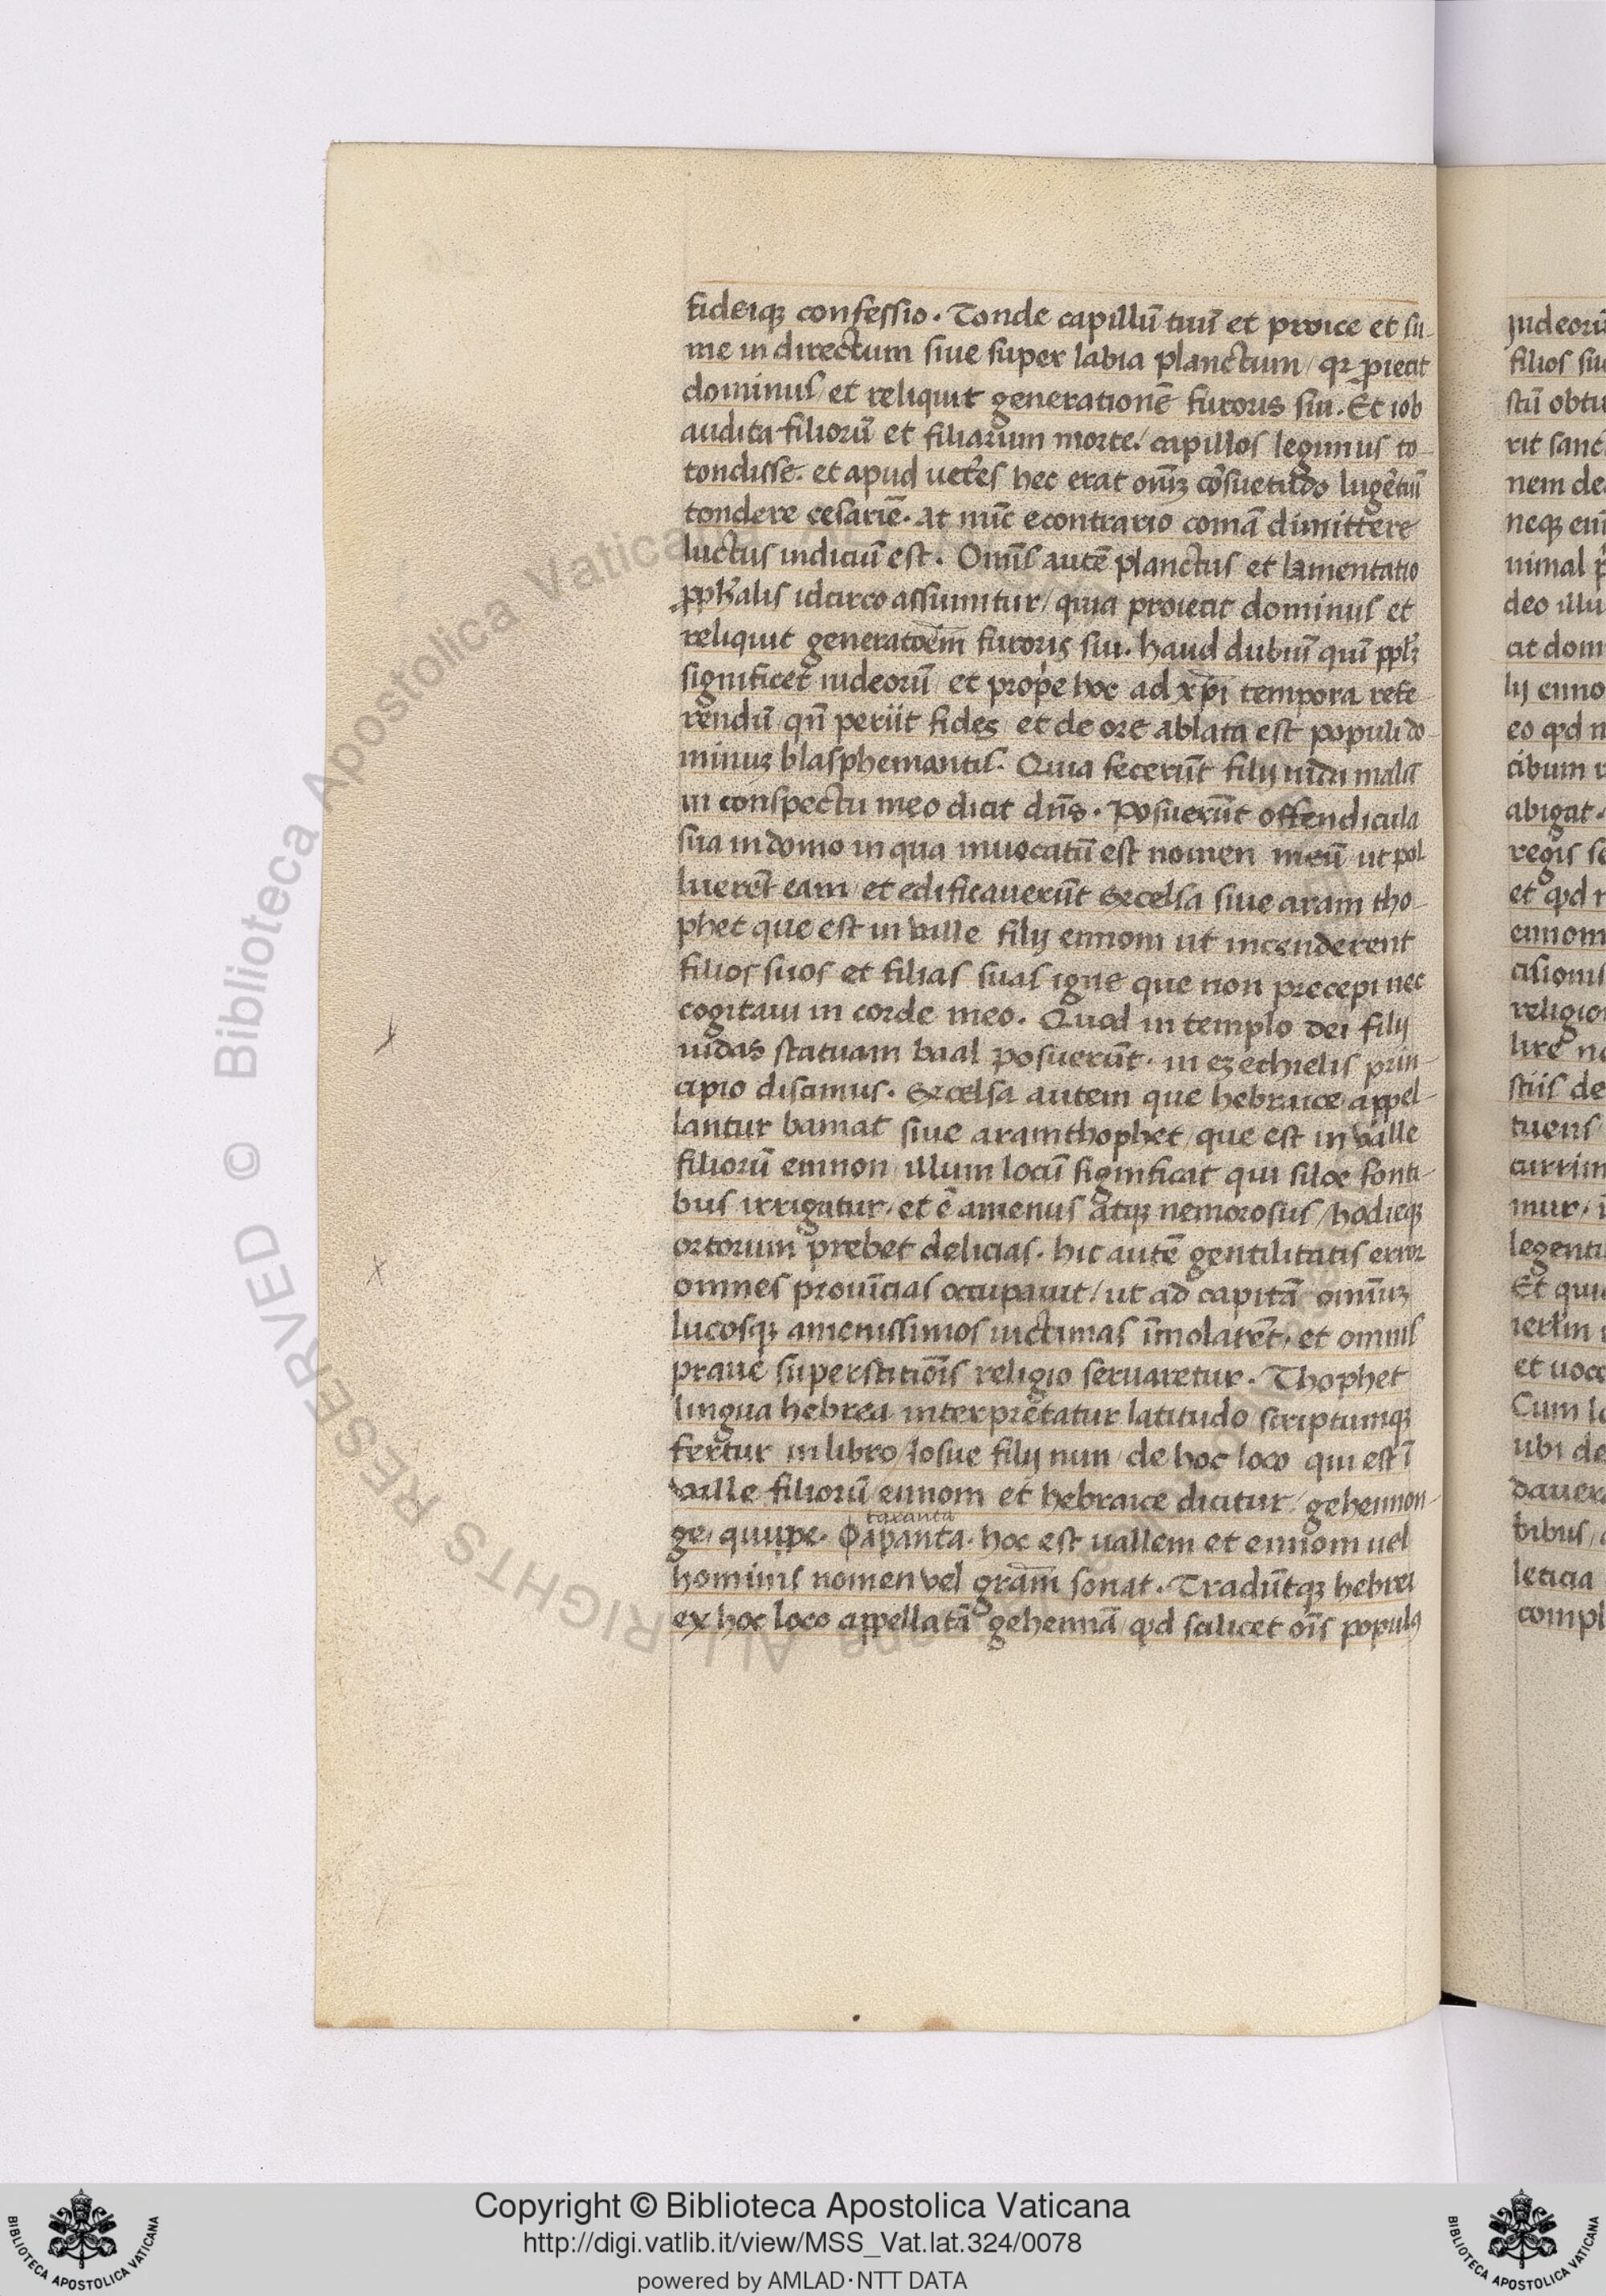 fideiqꝫ confessio. Tonde capillū tuū et proice et su-
me in directum siue super labia planctum / qꝛ ꝓiecit
dominus / et reliquit generationē furoris sui. Et iob
audita filiorū et filiarum morte / capillos legimus to-
tondisse. et apud uet̄es hec erat om̄iꝫ cōsuetudo lugētiū
tondere cesariē. at nūc econtrario comā dimittere
luctus indiciū est. Omīs autē planctus et lamentatio
ꝓph̄alis idcirco assumitur / quia proiecit dominus et
reliquit generatōem furoris sui. haud dubiū quī ppl̄ꝫ
significet iudeorū / et prope hoc ad xp̄i tempora refe-
rendū qn̄ periit fides / et de ore ablata est populi do-
minuꝫ blasphemantis. Quia fecerūt filij iuda mala
in conspectu meo dicit dn̄s. Posuerūt offendicula
sua in domo in qua inuocatū est nomen meū ut pol
luerēt eam / et edificauerūt excelsa siue aram tho-
phet que est in valle filij ennom ut incenderent
filios suos et filias suas igne que non precepi nec
cogitaui in corde meo. Quod in templo dei filij
iudas statuam baal posuerūt. in ezechielis prin-
cipio discimus. Excelsa autem que hebraice appel-
lantur bamat siue aramthophet / que est in valle
filiorū ennon / illum locū significat qui siloe fonti-
bus irrigatur / et ē amenus atqꝫ nemorosus / hodieqꝫ
ortorum prebet delicias. hic autē gentilitatis error
omnes prouīcias occupauit / ut ad capitā omīuꝫ
lucosqꝫ amenissimos uictimas īmolarēt / et omnis
praue superstitiōis religio seruaretur. Thophet
lingua hebrea interpretatur latitudo scriptumqꝫ
fertur in libro / Iosue filij nun / de hoc loco qui est ī
valle filiorū ennom et hebraice dicitur / gehennon-
taranta
ge / quippe. ϕapanta. hoc est uallem et ennom uel
hominis nomen vel gr̄am sonat. Tradūtqꝫ hebrei
ex hoc loco appellatā gehennā / qd scilicet oīs populꝰ
Copyright © Biblioteca Apostolica Vaticana
http://digi.vatlib.it/view/MSS_Vat.lat.324/0078
powered by AMLAD·NTT DATA